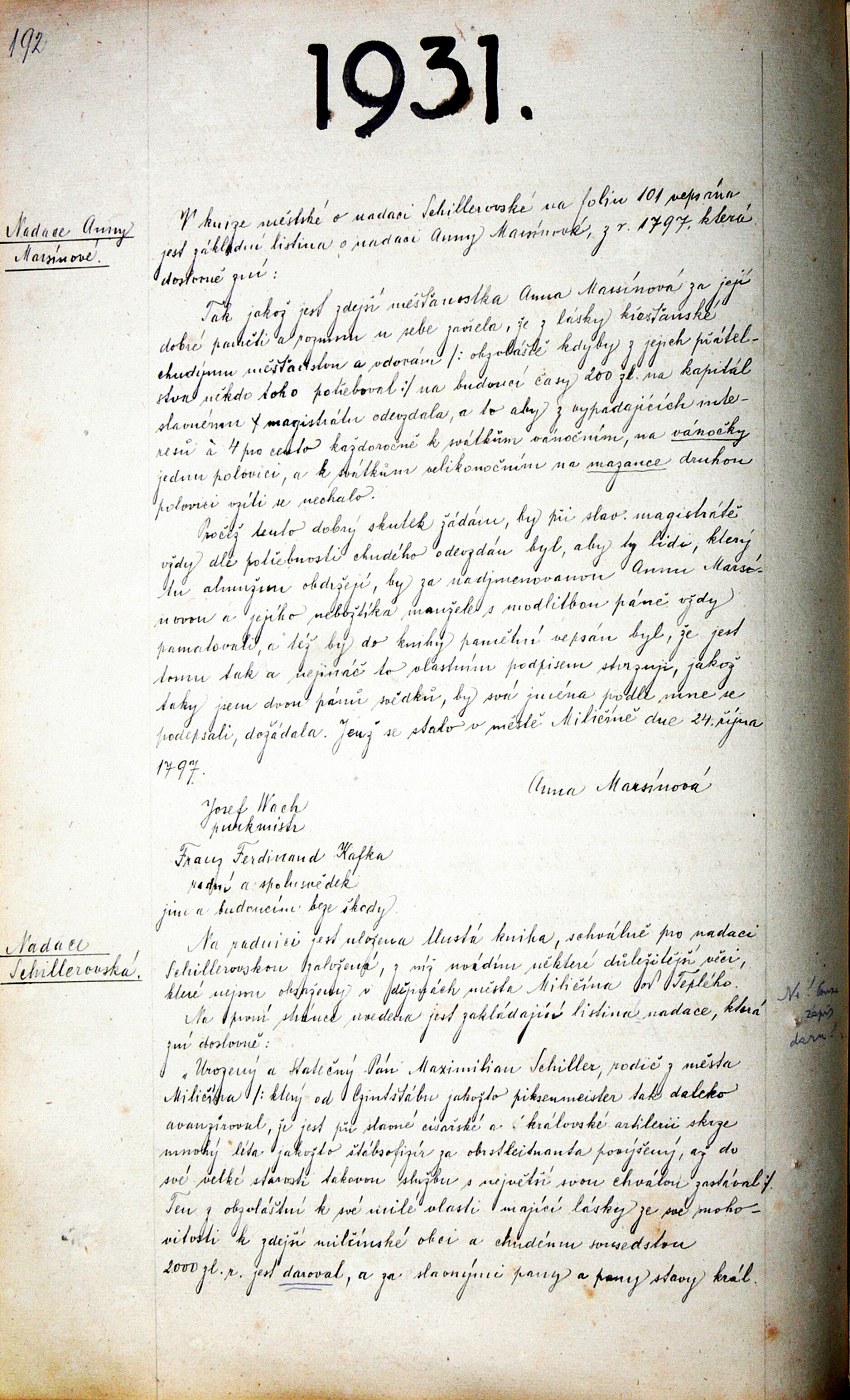 192
1931.
Nadace Anny
Marsínové.
V knize městské o nadaci Schillerovské na foliu 101 vepsána
jest základní listina o nadaci Anny Marsínové, z r. 1797. která
doslovně zní:
Tak jakož jest zdejší měšťanostka Anna Marsínová za její
dobré paměti a rozumu u sebe zavřela, že z lásky křesťanské
chudýmu měšťanstvu a vdovám /: obzvláště kdyby z jejich přátel-
stva někdo toho potřeboval :/ na budoucí časy 200 zl. na kapitál
slavnému magistrátu odevzdala, a to aby z vypadajících inte-
resů à 4 pro cento každoročně k svátkům vánočním, na vánočky
jednu polovici, a k svátkům velikonočním na mazance druhou
polovici vzíti se nechalo.
Pročež tento dobrý skutek žádám, by při slav. magistrátě
vždy dle potřebnosti chudého odevzdán byl, aby ty lidi, který
tu almužnu obdržejí, by za nadjmenovanou Annu Marsí-
novou a jejího nebožtíka manžele s modlitbou páně vždy
pamatovali, a též by do knihy pamětní vepsán byl, že jest
tomu tak a nejináč to vlastním podpisem stvrzuji, jakož
taky jsem dvou pánů svědků, by svá jména podle mne se
podepsali, dožádala. Jenž se stalo v městě Miličíně dne 24. října
1797.
Anna Marsínová
Josef Wach
purkmistr
Franz Ferdinand Kafka
radní a spolusvědek
jim a budoucím beze škody.
Nadace
Schillerovská.
Na radnici jest uložena tlustá kniha, schválně pro nadaci
Schillerovskou založená, z níž uvádím některé důležitější věci,
které nejsou obsaženy v dějinách města Miličína od Teplého.
Na první stránce uvedena jest zakládající listina nadace, která
zní doslovně:
„Urozený a Statečný Pán Maximilian Schiller, rodič z města
Miličína /: který od Czintštábu jakožto piksenmeister tak daleko
avanzíroval, že jest při slavné císařské a královské artilerii skrze
mnohý léta jakožto štábsofizír za obrstleitnanta povýšený, až do
své velké starosti takovou službu s největší svou chválou zastával :/.
Ten z obzvláštní k své milé vlasti mající lásky ze své moho-
vitosti k zdejší milčínské obci a chudému sousedstvu
2000 zl. r. jest daroval, a za slavnými pany a pany stavy král.
Ne!
zápis
daru!